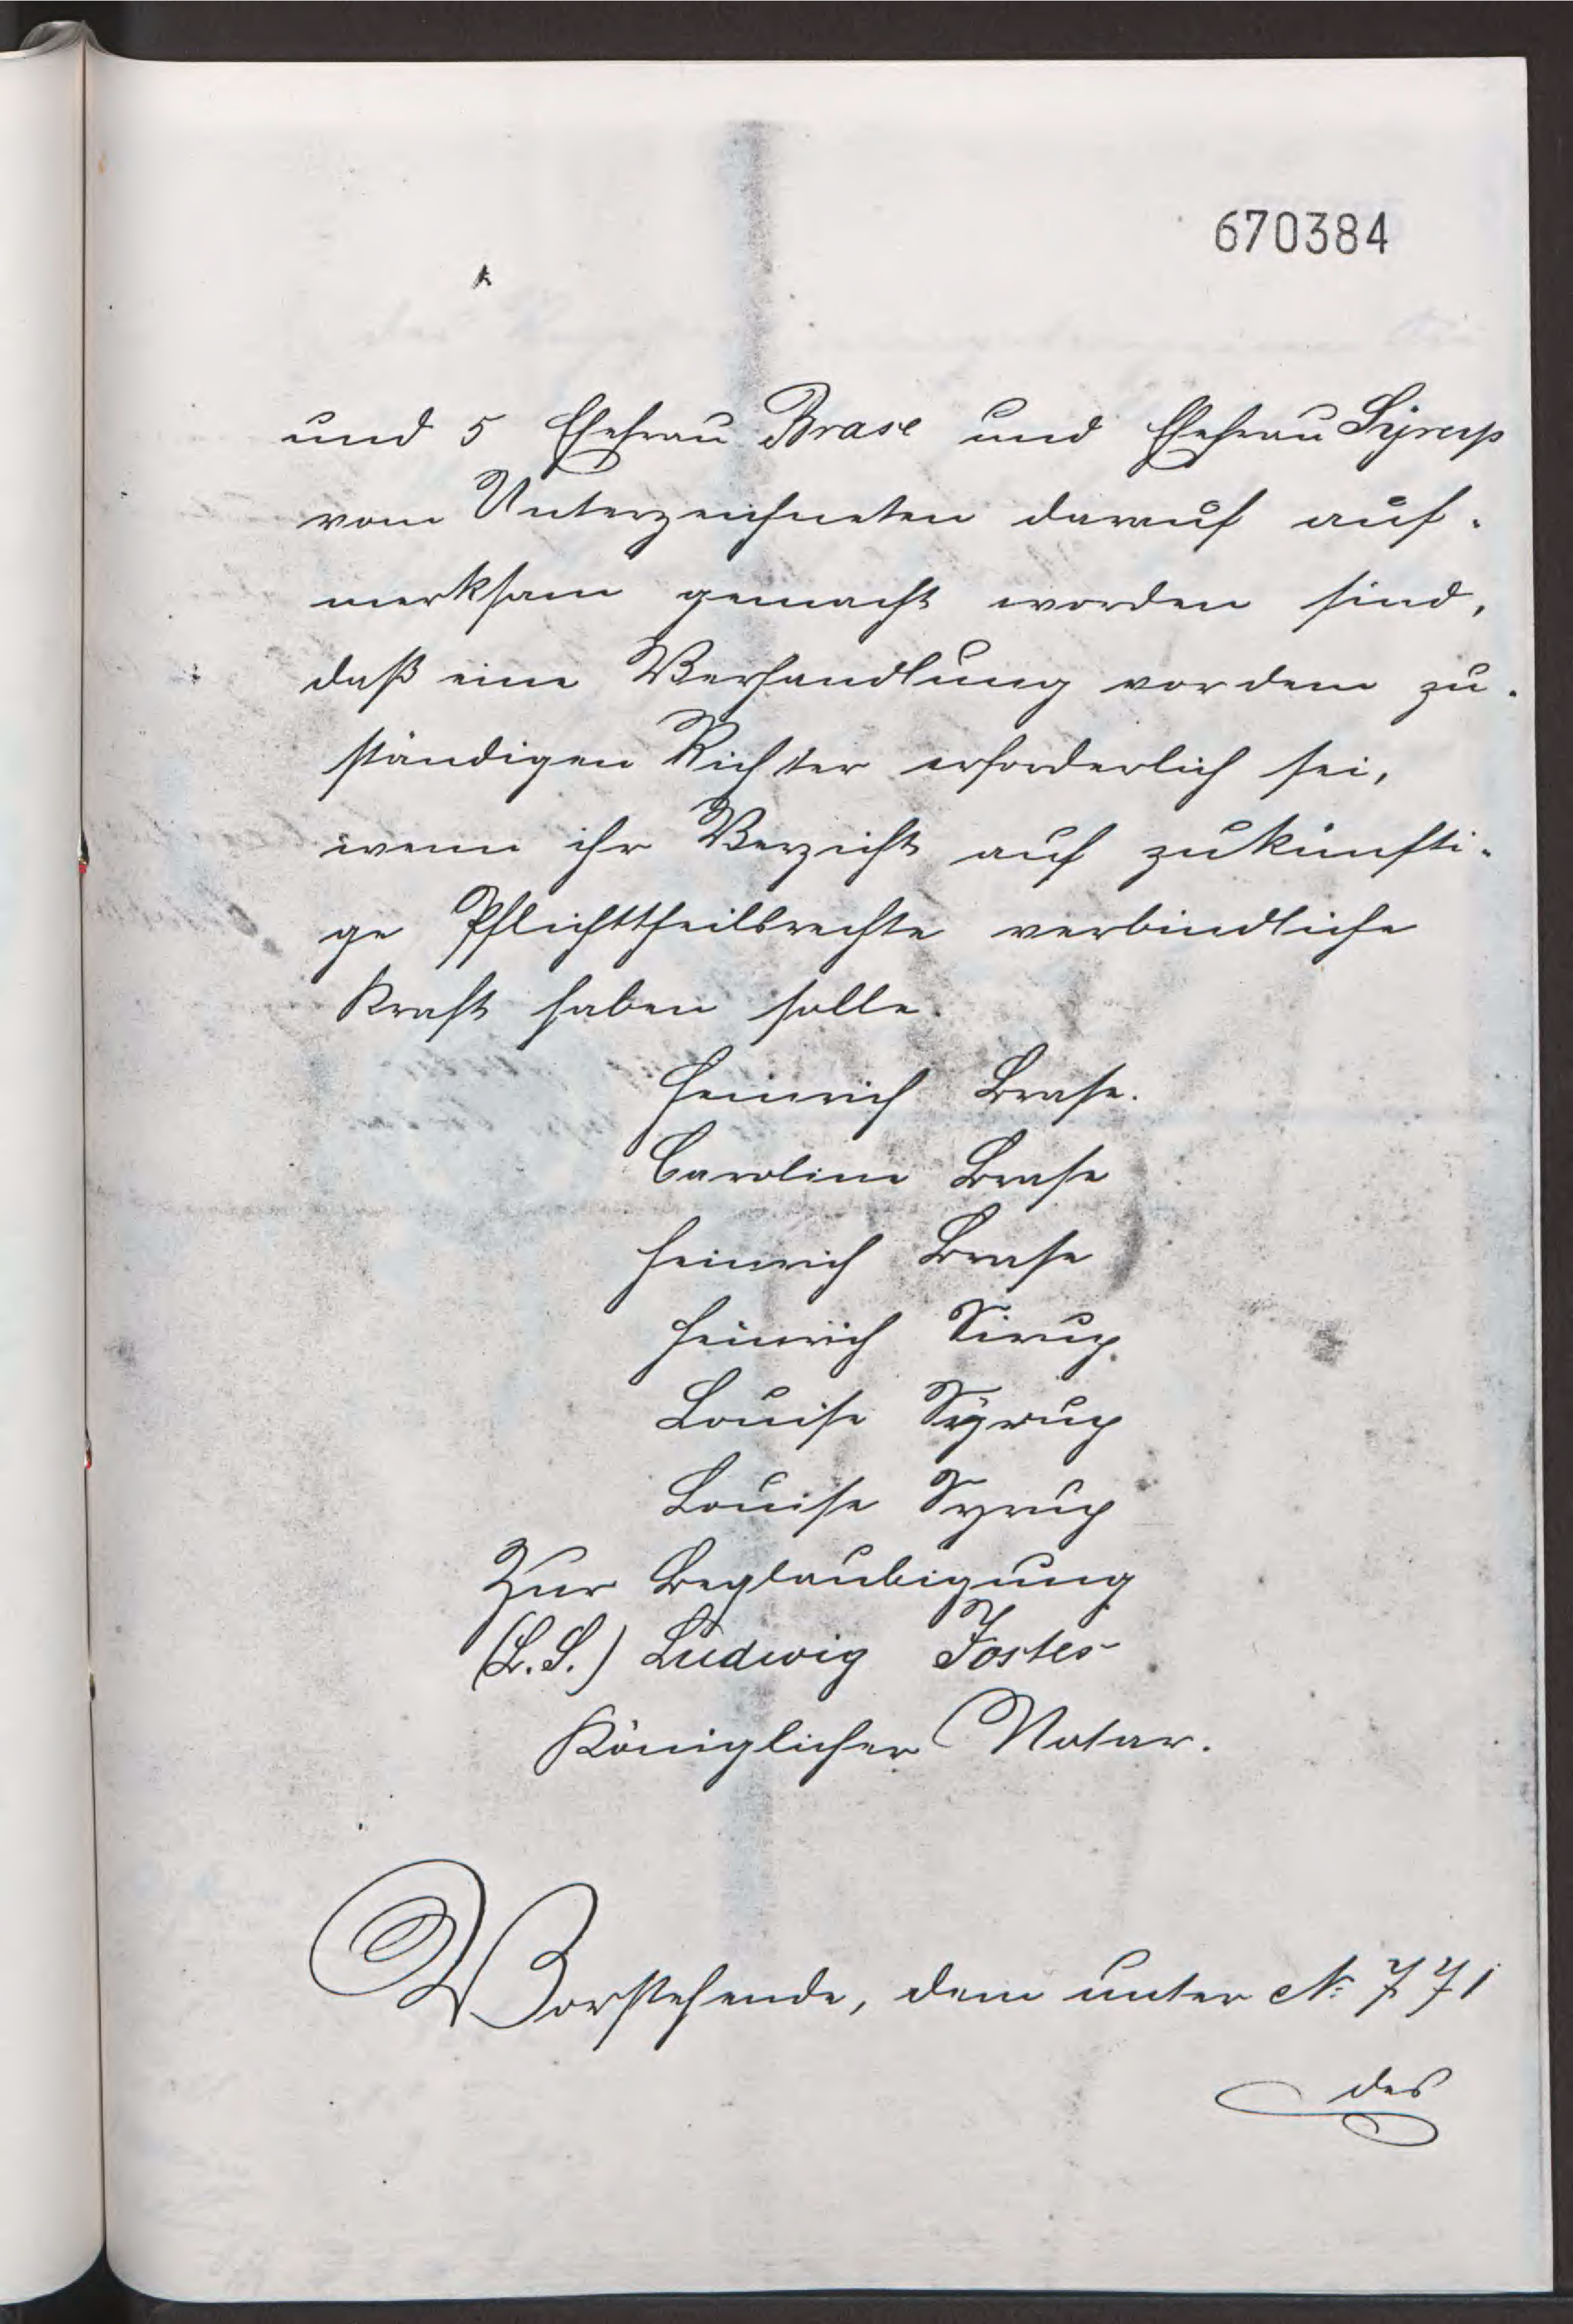 670384
und 5 Ehefrau Brase und Ehefrau Syrup
vom Unterzeichneten darauf auf-
merksam gemacht worden sind,
daß eine Verhandlung vor dem zu-
ständigen Richter erforderlich sei,
wenn ihr Verzicht auf zukünfti-
ge Pflichttheilsrechte verbindliche
Kraft haben solle.
Heinrich Brase.
Caroline Brase
Heinrich Brase
Heinrich Sirup.
Louise Syrup
Louise Syrup
Zur Beglaubigung
(L.S.) Ludwig Jostes
Königlicher Notar.
Vorstehende, dem unter No 771
des